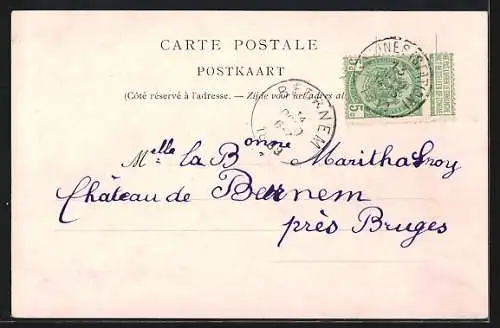 CARTE POSTALE
POSTKAART
(Côté réservé à l'adresse. — Zijde voor het adres
BEERNEM
14
1899
5
Melle la Bonne
Château de Bernem
près Bruges